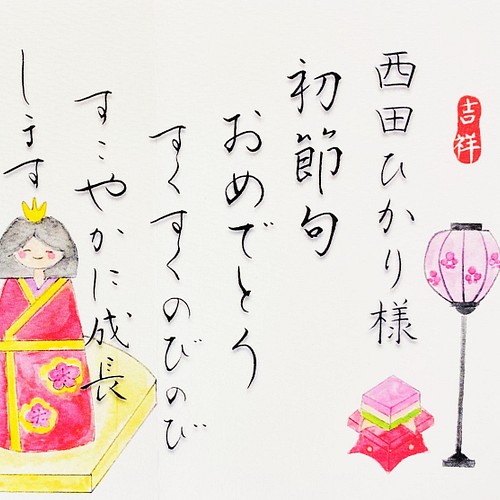 吉祥
西田ひかり様
初節句
おめでとう
すくすくのびのび
すこやかに成長
します